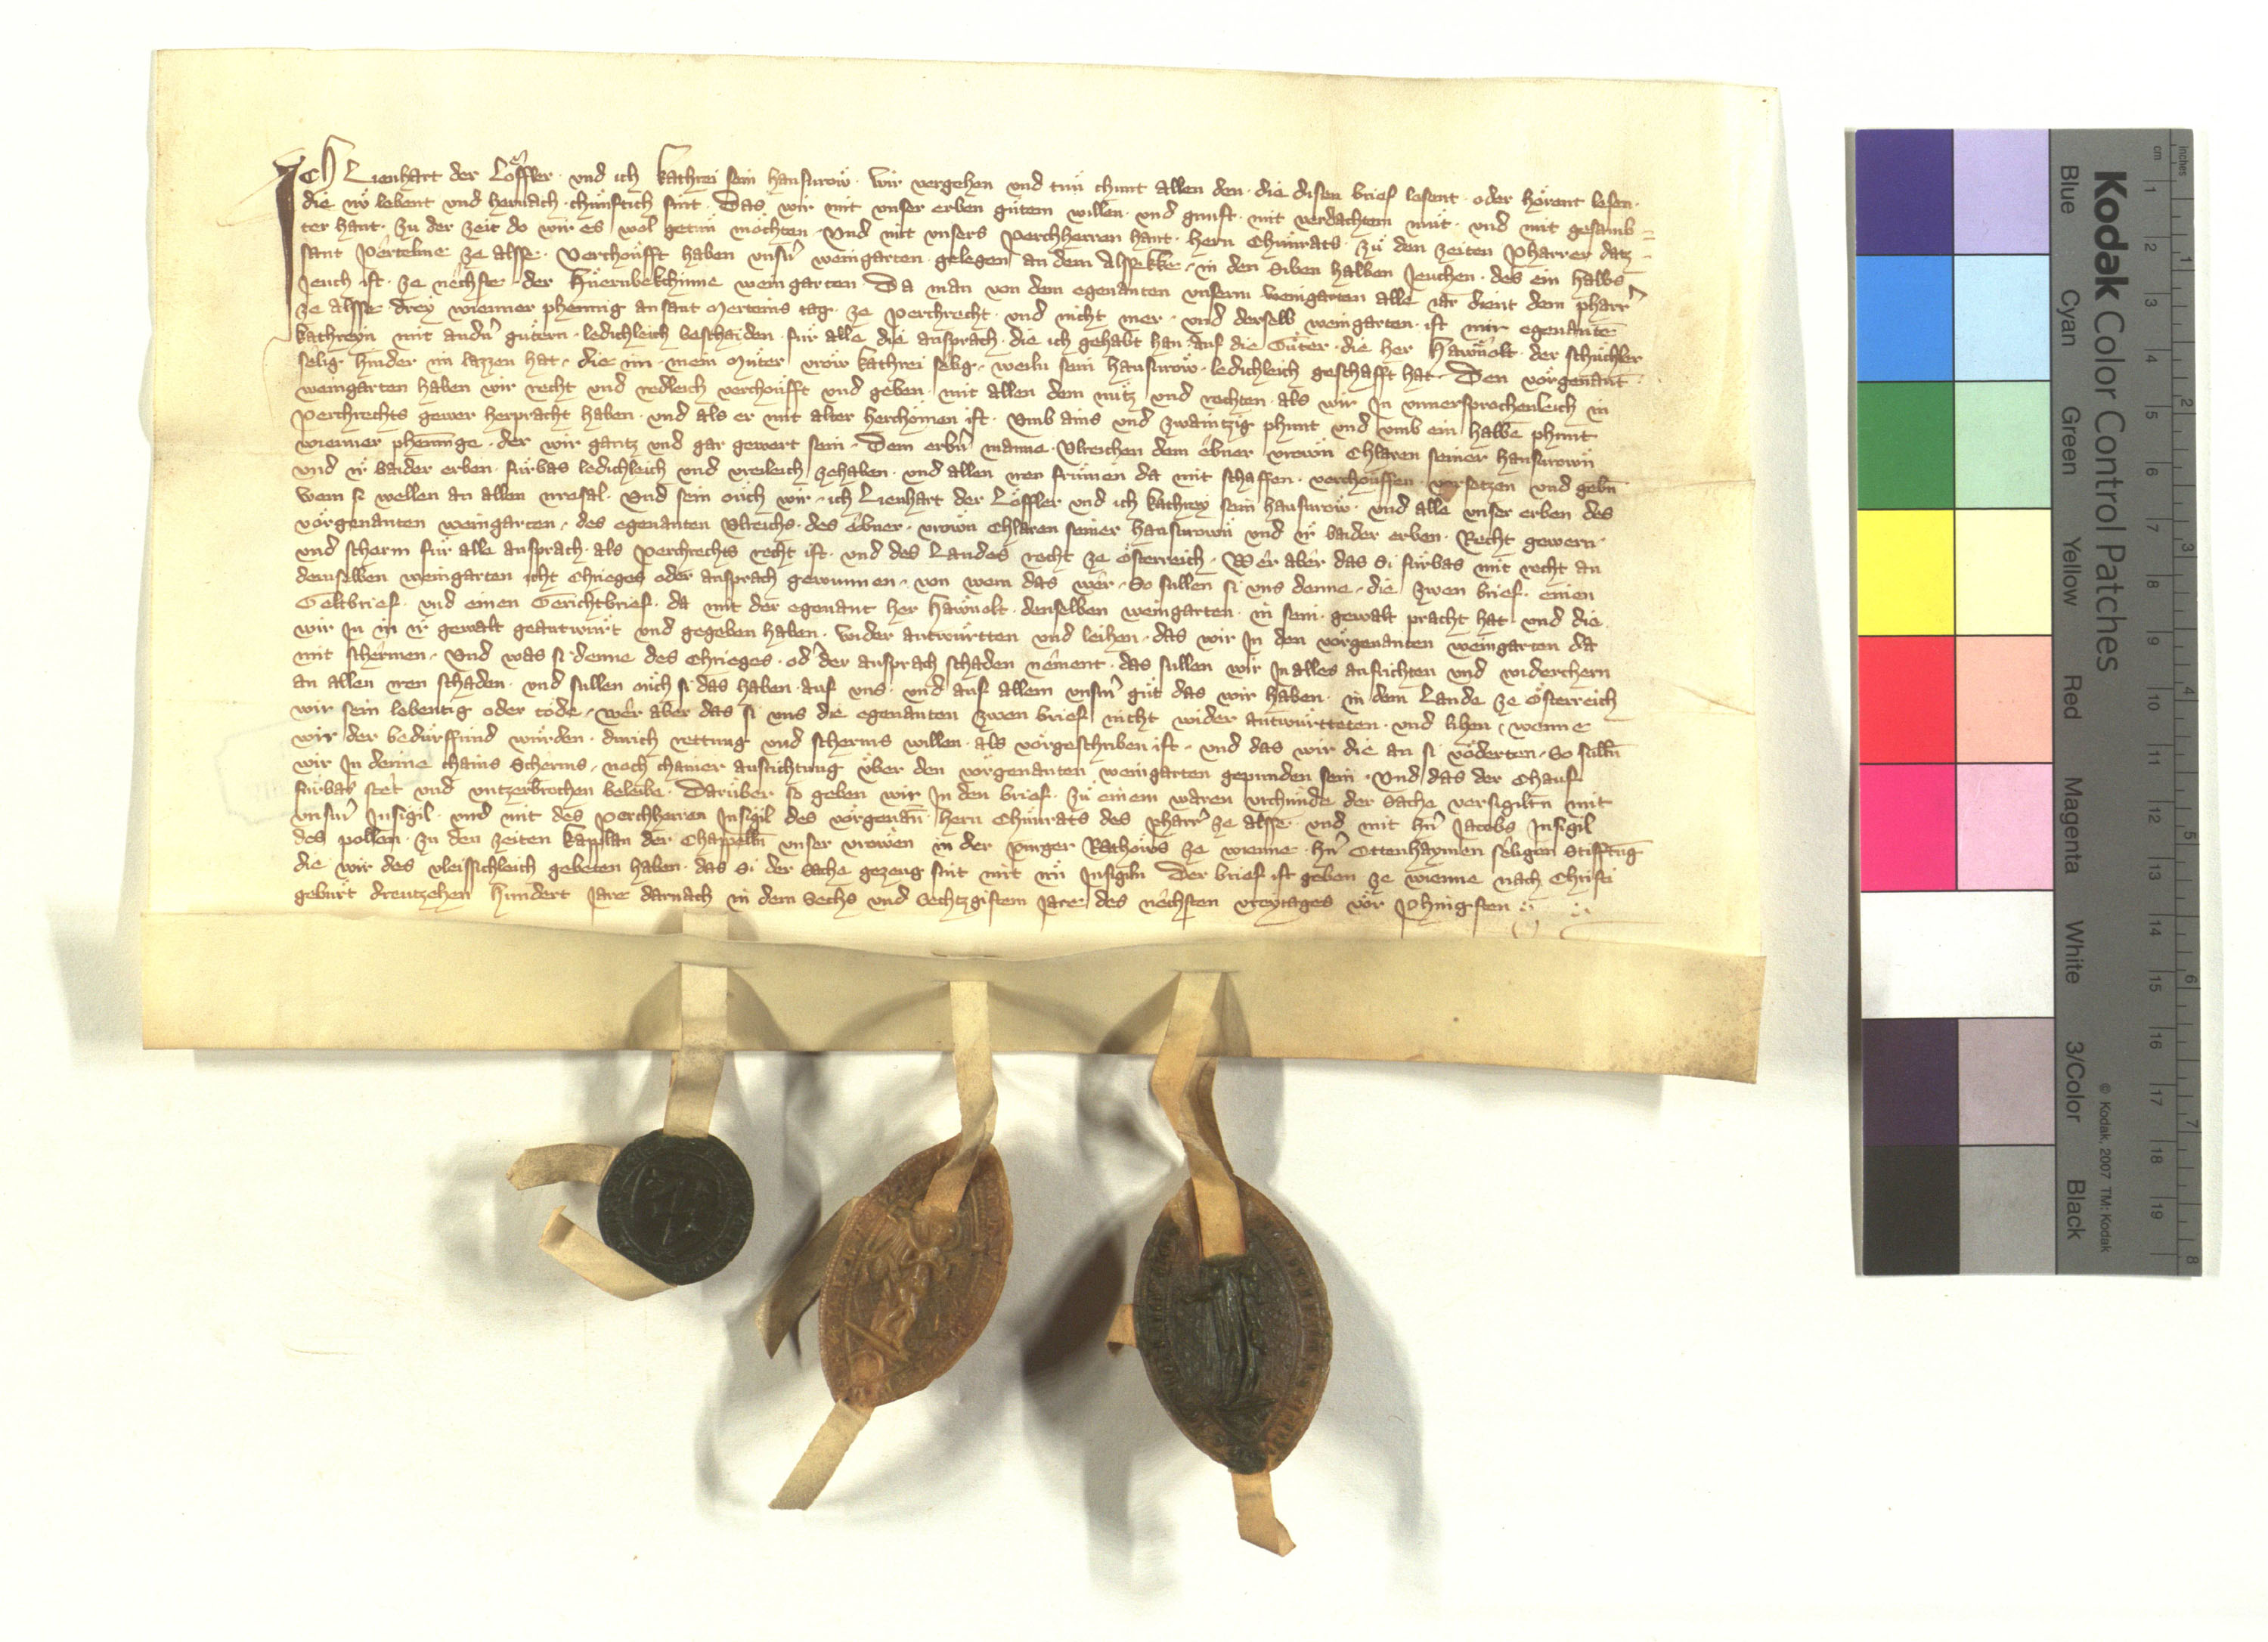 Ich Lienhart der Loͤffler · vnd ich kathrei sein hausvrow · wir vergehen vnd tuͤn chunt allen den · die disen brief lesent · oder hoͤrent lesen ·
die nv lebent vnd hernach · chuͤnftich sint · Das wir mit vnser erben guͤtem willen · vnd gunst · mit verdachtem muͤt · vnd mit gesamb=
ter hant · zu der zeit do wir es wol getuͤn mochten · Vnd mit vnsers perchherren hant · hern Chuͤnrats · zu den zeiten Pharrer datz
sant Pertelme ze alsse · Verchoufft haben vnsern weingarten · gelegen an dem Alssekke · in den Siben halben Jeuchen · des ein halbs
Jeuch ist · ze nechste · der weingarten Da man von dem egenanten vnserm weingarten alle iar dient dem pharrer
ze alsse · drey wienner phenning an sant Merteins tag · ze perchrecht · vnd nicht mer · vnd derselb weingarten · ist mir egenanten
kathreyn mit andern guͤtern · ledichleich beschaiden · fuͤr alle die ansprach · die ich gehabt han · Auf die Guͤter · die her Hawnolt · der schuͤchler
selig hinder im lazzen hat · die im · mein Muter vrow kathrei selig · weiln sein hausvrow · ledichleich geschafft hat · Den vorgenanten
weingarten haben wir recht vnd redleich verchoufft vnd geben · mit allen dem nutz vnd rechten · als wir in vnuersprochenleich in
perchrechts gewer herpracht haben · vnd als er mit alter herchomen ist · Vmb ains vnd zwaintzig phunt vnd vmb ein halbe phunt
wienner phenninge · der wir gantz vnd gar gewert sein · Dem erbern manne · Vlreichen dem ebner · vrown Chlaren seiner hausvrown
vnd ir baider erben · fuͤrbas ledichleich vnd vreileich zehaben · vnd allen iren frumen da mit schaffen · verchouffen · versetzen vnd geben
Wem si wellen an allen irresal · Vnd sein ouch wir · ich Lienhart der Loͤffler vnd ich kathrey sein hausvrow · vnd alle vnser erben des
vorgenanten weingarten · des egenanten Vlreichs · des ebner · vrown Chlaren seiner hausvrown vnd ir baider erben · Recht gewern
vnd scherm fuͤr alle ansprach · als perchrechts recht ist · vnd des Landes recht ze Osterreich · Wer aber das si fuͤrbas mit recht an
demselben weingarten icht chrieges oder ansprach gewunnen · von wem das wer · So sullen si vns denne · die zwen brief · einen
Geltbrief · vnd einen Gerichtbrief · da mit der egenant her Hawnolt · denselben weingarten · in sein · gewalt pracht hat vnd die
wir In in ir gewalt geantwurt vnd gegeben haben · wider antwurtten vnd leihen · das wir In den vorgenanten weingarten da
mit schermen · Vnd was si denne des chrieges · oder der ansprach schaden nement · das sullen wir In alles ausrichten vnd widerchern
an allen iren schaden · vnd sullen ouch si das haben · auf vns · vnd auf allem vnserm guͤt das wir haben · in dem Lande ze Osterreich
wir sein lebentig oder tode · wer aber das si vns die egenanten zwen brief nicht wider antwurtteten · vnd lihen · wenne
wir der beduͤrffund wurden · durich rettung vnd scherms willen · als vorgeschriben ist · vnd das wir die an si voderten · So sulln
wir In denne chains scherms · noch chainer ausrichtung uͤber den vorgenanten weingarten gepunden sein · Vnd das der chauf
fuͤrbas stet vnd vntzerbrochen beleibe · Daruͤber so geben wir In den brief · zu einem waren vrchunde der sache versigilten mit
vnserm Insigil · vnd mit des perchherren Insigil des vorgenanten hern Chunrats des pharrer ze alsse · vnd mit hern Jacobs Insigil
des pollen · zu den zeiten kapplan der Chappelln vnser vrowen in der purger Rathous ze wienne · hern Ottenhaymen seligen Stifftung
die wir des vleissichleich gebeten haben · das si der sache gezeug sint mit irn Insigiln Der brief ist geben ze wienne nach Christi
geburt dreutzehen hundert jare darnach in dem Sechs vnd Sechtzgistem Jare · des nechsten vreytages vor Phingsten
Kodak Color Control Patches
Blue Cyan Green Yellow Red Magenta White 3/Color Black
© Kodak, 2007 TM: Kodak
cm 1 2 3 4 5 6 7 8 9 10 11 12 13 14 15 16 17 18 19
inches 1 2 3 4 5 6 7 8